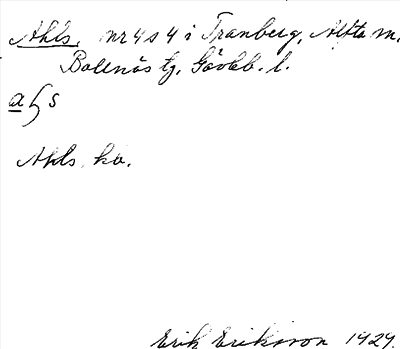 Ahls, nr 4 s 4 i Tranberg, Alfta m.
Bollnäs tg. Gävleb. l.
aɧs
Ahls ko.
Erik Eriksson 1929.